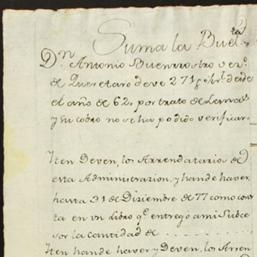 Suma la Buelta
Dn. Antonio Buenrrostro vez.
de Queretaro deve 271 ps. desde
el año de 62, por trato de
y su cobro no se ha podido verificar.
Iten Deven, los Arrendatarios de
esta Administrazion, y han de haver
hasta 31 de Diziembre de 77 como cons
ta en un libro qe. entregó a mi Subce
sor la Cantidad de
Iten han de haver y Deven, los Arren